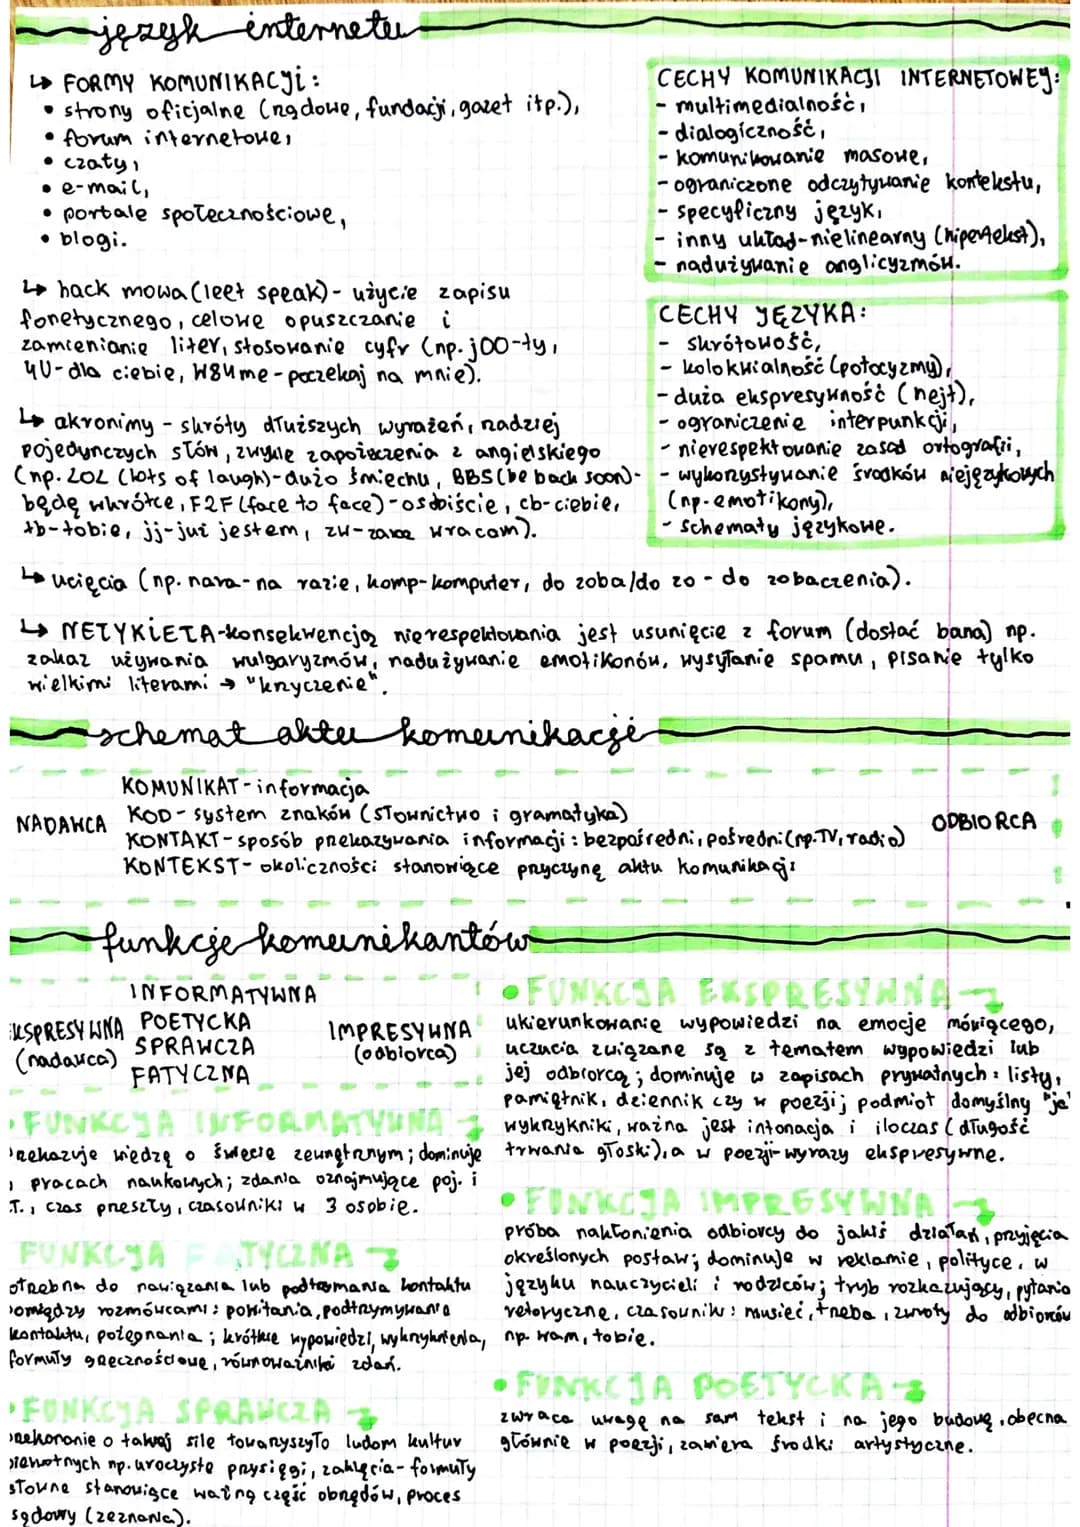 język internetu
↳ FORMY KOMUNIKACJI:
• strony oficjalne (rządowe, fundacji, gazet itp.),
• forum internetowe,
• czaty,
• e-mail,
• portale społecznościowe,
• blogi.
CECHY KOMUNIKACJI INTERNETOWEJ:
- multimedialność,
- dialogiczność,
- komunikowanie masowe,
- ograniczone odczytywanie kontekstu,
- specyficzny język,
- inny układ-nielinearny (hipertekst),
- nadużywanie anglicyzmów.
↳ hack mowa (leet speak) - użycie zapisu
fonetycznego, celowe opuszczanie i
zamienianie liter, stosowanie cyfr (np. j00-ty,
4U-dla ciebie, W84me-poczekaj na mnie).
CECHY JĘZYKA:
- skrótowość,
- kolokwialność (potocyzmy),
- duża ekspresywność (nejt),
- ograniczenie interpunkcji,
- nierespektowanie zasad ortografii,
- wykorzystywanie środków niejęzykowych
(np. emotikony),
- schematy językowe.
↳ akronimy - skróty dłuższych wyrażeń, rzadziej
pojedynczych słów, zwykle zapożyczenia z angielskiego
(np. LOL (lots of laugh)-dużo śmiechu, BBS (be back soon)-
będę wkrótce, F2F (face to face)-osobiście, cb-ciebie,
tb-tobie, jj-już jestem, zw-zaraz wracam).
↳ ucięcia (np. nara-na razie, komp-komputer, do zoba/do zo - do zobaczenia).
↳ NETYKIETA-konsekwencją nierespektowania jest usunięcie z forum (dostać bana) np.
zakaz używania wulgaryzmów, nadużywanie emotikonów, wysyłanie spamu, pisanie tylko
wielkimi literami → "krzyczenie".
schemat aktu komunikacji
KOMUNIKAT-informacja
NADAWCA KOD-system znaków (słownictwo i gramatyka) ODBIORCA
KONTAKT-sposób przekazywania informacji: bezpośredni, pośredni (np. TV, radio)
KONTEKST-okoliczności stanowiące przyczynę aktu komunikacji
funkcje komunikantów
INFORMATYWNA
EKSPRESYWNA POETYCKA IMPRESYWNA
(nadawca) SPRAWCZA (odbiorca)
FATYCZNA
• FUNKCJA INFORMATYWNA
przekazuje wiedzę o świecie zewnętrznym; dominuje
w pracach naukowych; zdania oznajmujące poj. i
zł., czas przeszły, czasowniki w 3 osobie.
FUNKCJA FATYCZNA
potrzebna do nawiązania lub podtrzymania kontaktu
pomiędzy rozmówcami: powitania, podtrzymywanie
kontaktu, pożegnania; krótkie wypowiedzi, wykrzyknienia,
formuły grzecznościowe, równoważniki zdań.
• FUNKCJA SPRAWCZA
przekonanie o takiej sile towarzyszyło ludom kultur
pierwotnych np. uroczyste przysięgi, zaklęcia-formuły
słowne stanowiące ważną część obrzędów, proces
sądowy (zeznania).
• FUNKCJA EKSPRESYWNA
ukierunkowanie wypowiedzi na emocje mówiącego,
uczucia związane są z tematem wypowiedzi lub
jej odbiorcą; dominuje w zapisach prywatnych: listy,
pamiętnik, dziennik czy w poezji; podmiot domyślny "ja"
wykrzykniki, ważna jest intonacja i iloczas (długość
trwania głoski), a w poezji-wyrazy ekspresywne.
• FUNKCJA IMPRESYWNA
próba nakłonienia odbiorcy do jakiś działań, przyjęcia
określonych postaw; dominuje w reklamie, polityce, w
języku nauczycieli i rodziców; tryb rozkazujący, pytania
retoryczne, czasowniki: musieć, trzeba, zwroty do odbiorców
np. wam, tobie.
• FUNKCJA POETYCKA
zwraca uwagę na sam tekst i na jego budowę, obecna
głównie w poezji, zawiera środki artystyczne.